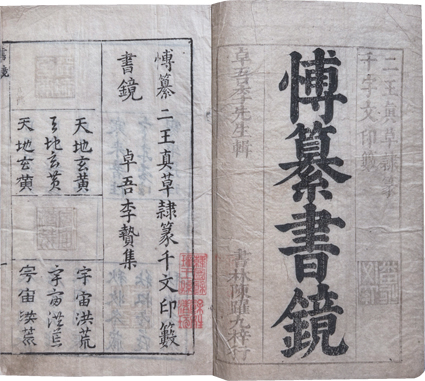 二王真
千字文印籔
博纂書鏡
卓吾李先生輯
書林陳躍九梓行
博纂二王真草隸篆千文印籔
書鏡
卓吾李贄集
天地玄黄
天地玄黄
天地玄黄
宇宙洪荒
宇宙洪荒
宇宙洪荒
書鏡